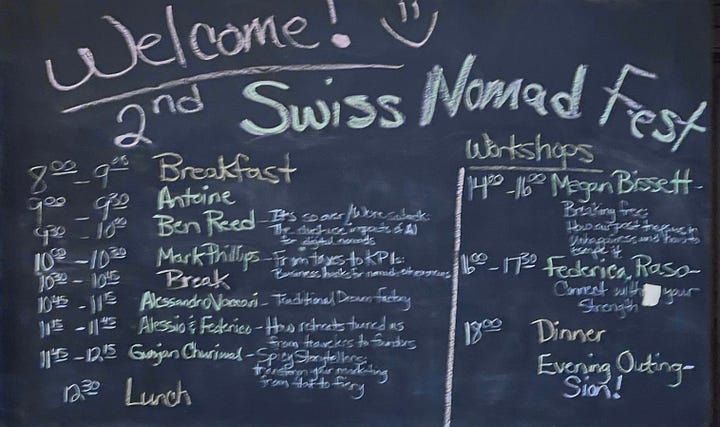 Welcome! :)
2nd Swiss Nomad Fest
8:00 - 9:00 Breakfast
9:00 - 9:30 Antoine
9:30 - 10:00 Ben Reed - It's so over/We're so back:
The dual-use impacts of AI
for digital nomads
10:00 - 10:30 Mark Phillips - From taxes to KPIs:
Business hacks for nomad entrepreneurs
10:30 - 10:45 Break
10:45 - 11:15 Alessandro Vaccari - Traditional Dream Factory
11:15 - 11:45 Alessio & Federico - How retreats turned us
from travelers to founders
11:45 - 12:15 Gunjan Churiwal - Spicy Storytellers:
transform your marketing
from flat to fiery
12:30 Lunch
Workshops
14:00 - 16:00 Megan Bissett -
Breaking free:
How our past traps us in
unhappiness and how to
escape it
16:00 - 17:30 Federica Raso -
Connect with your
Strength
18:00 Dinner
Evening Outing -
Sion!